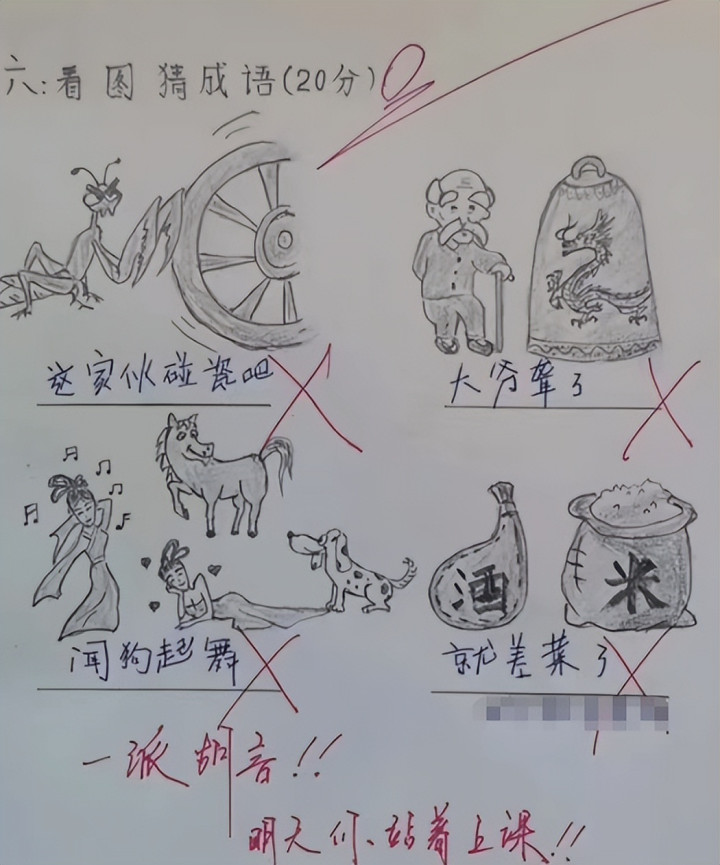 六:看图猜成语(20分) 0
这家伙碰瓷吧
大爷聋了
酒
米
闻狗起舞
就差菜了
一派胡言!!
明天你、站着上课!!